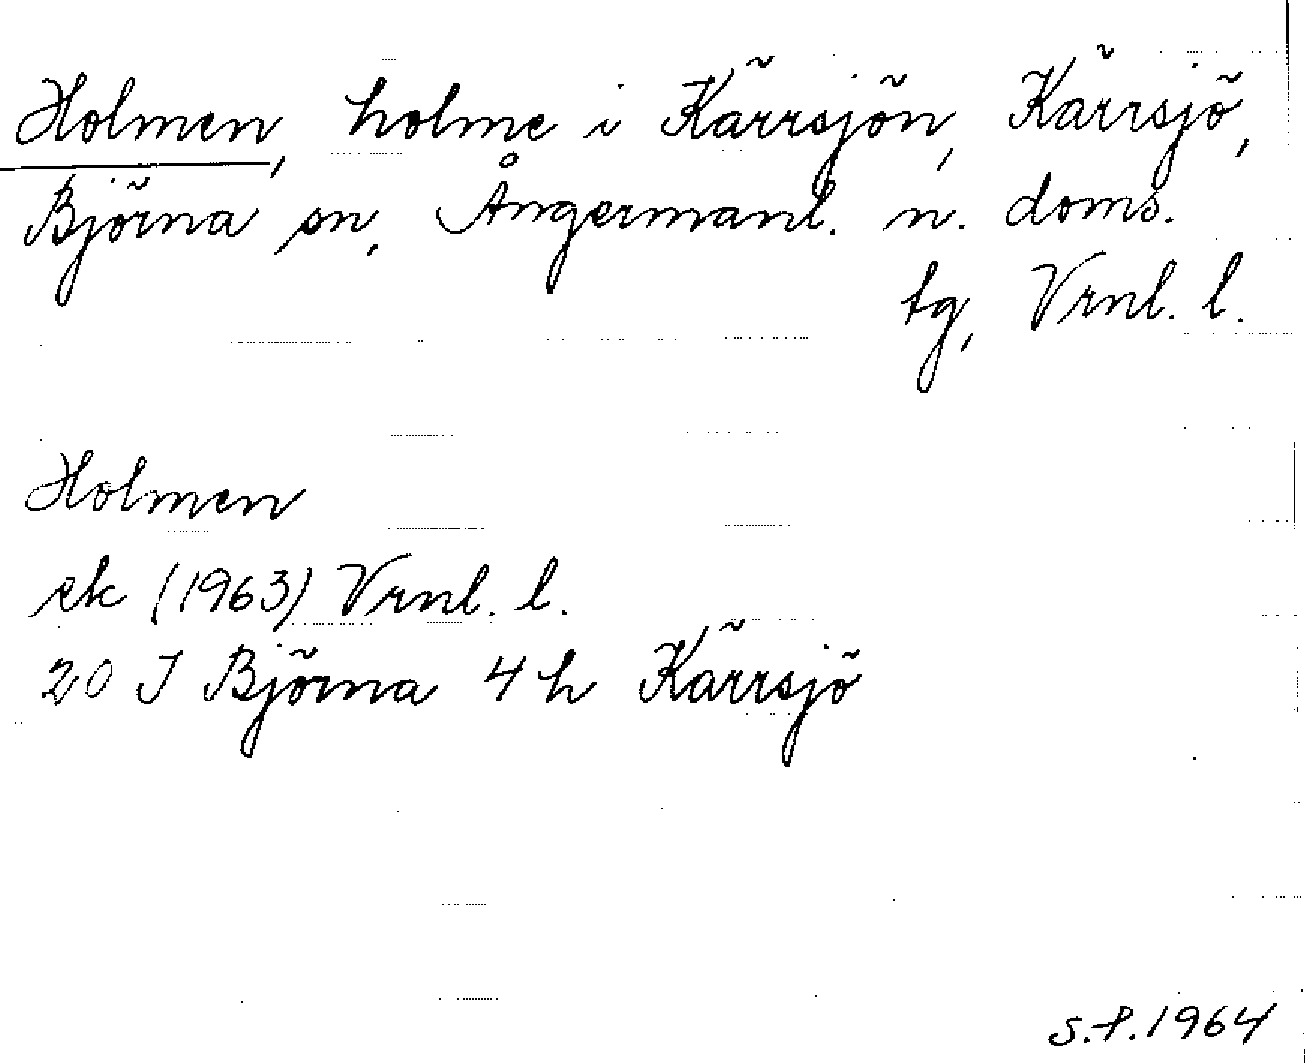 Holmen, holme i Kärrsjön, Kärrsjö,
Björna sn, Ångermanl. n. doms.
tg, Vrnl. l.
Holmen
ek (1963) Vrnl. l.
20 J Björna 4 h Kärrsjö
S.P. 1964